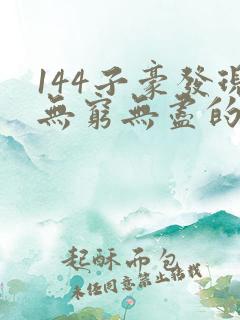 144子豪發現
無窮無盡的
起酥面包
未經同意禁止轉載